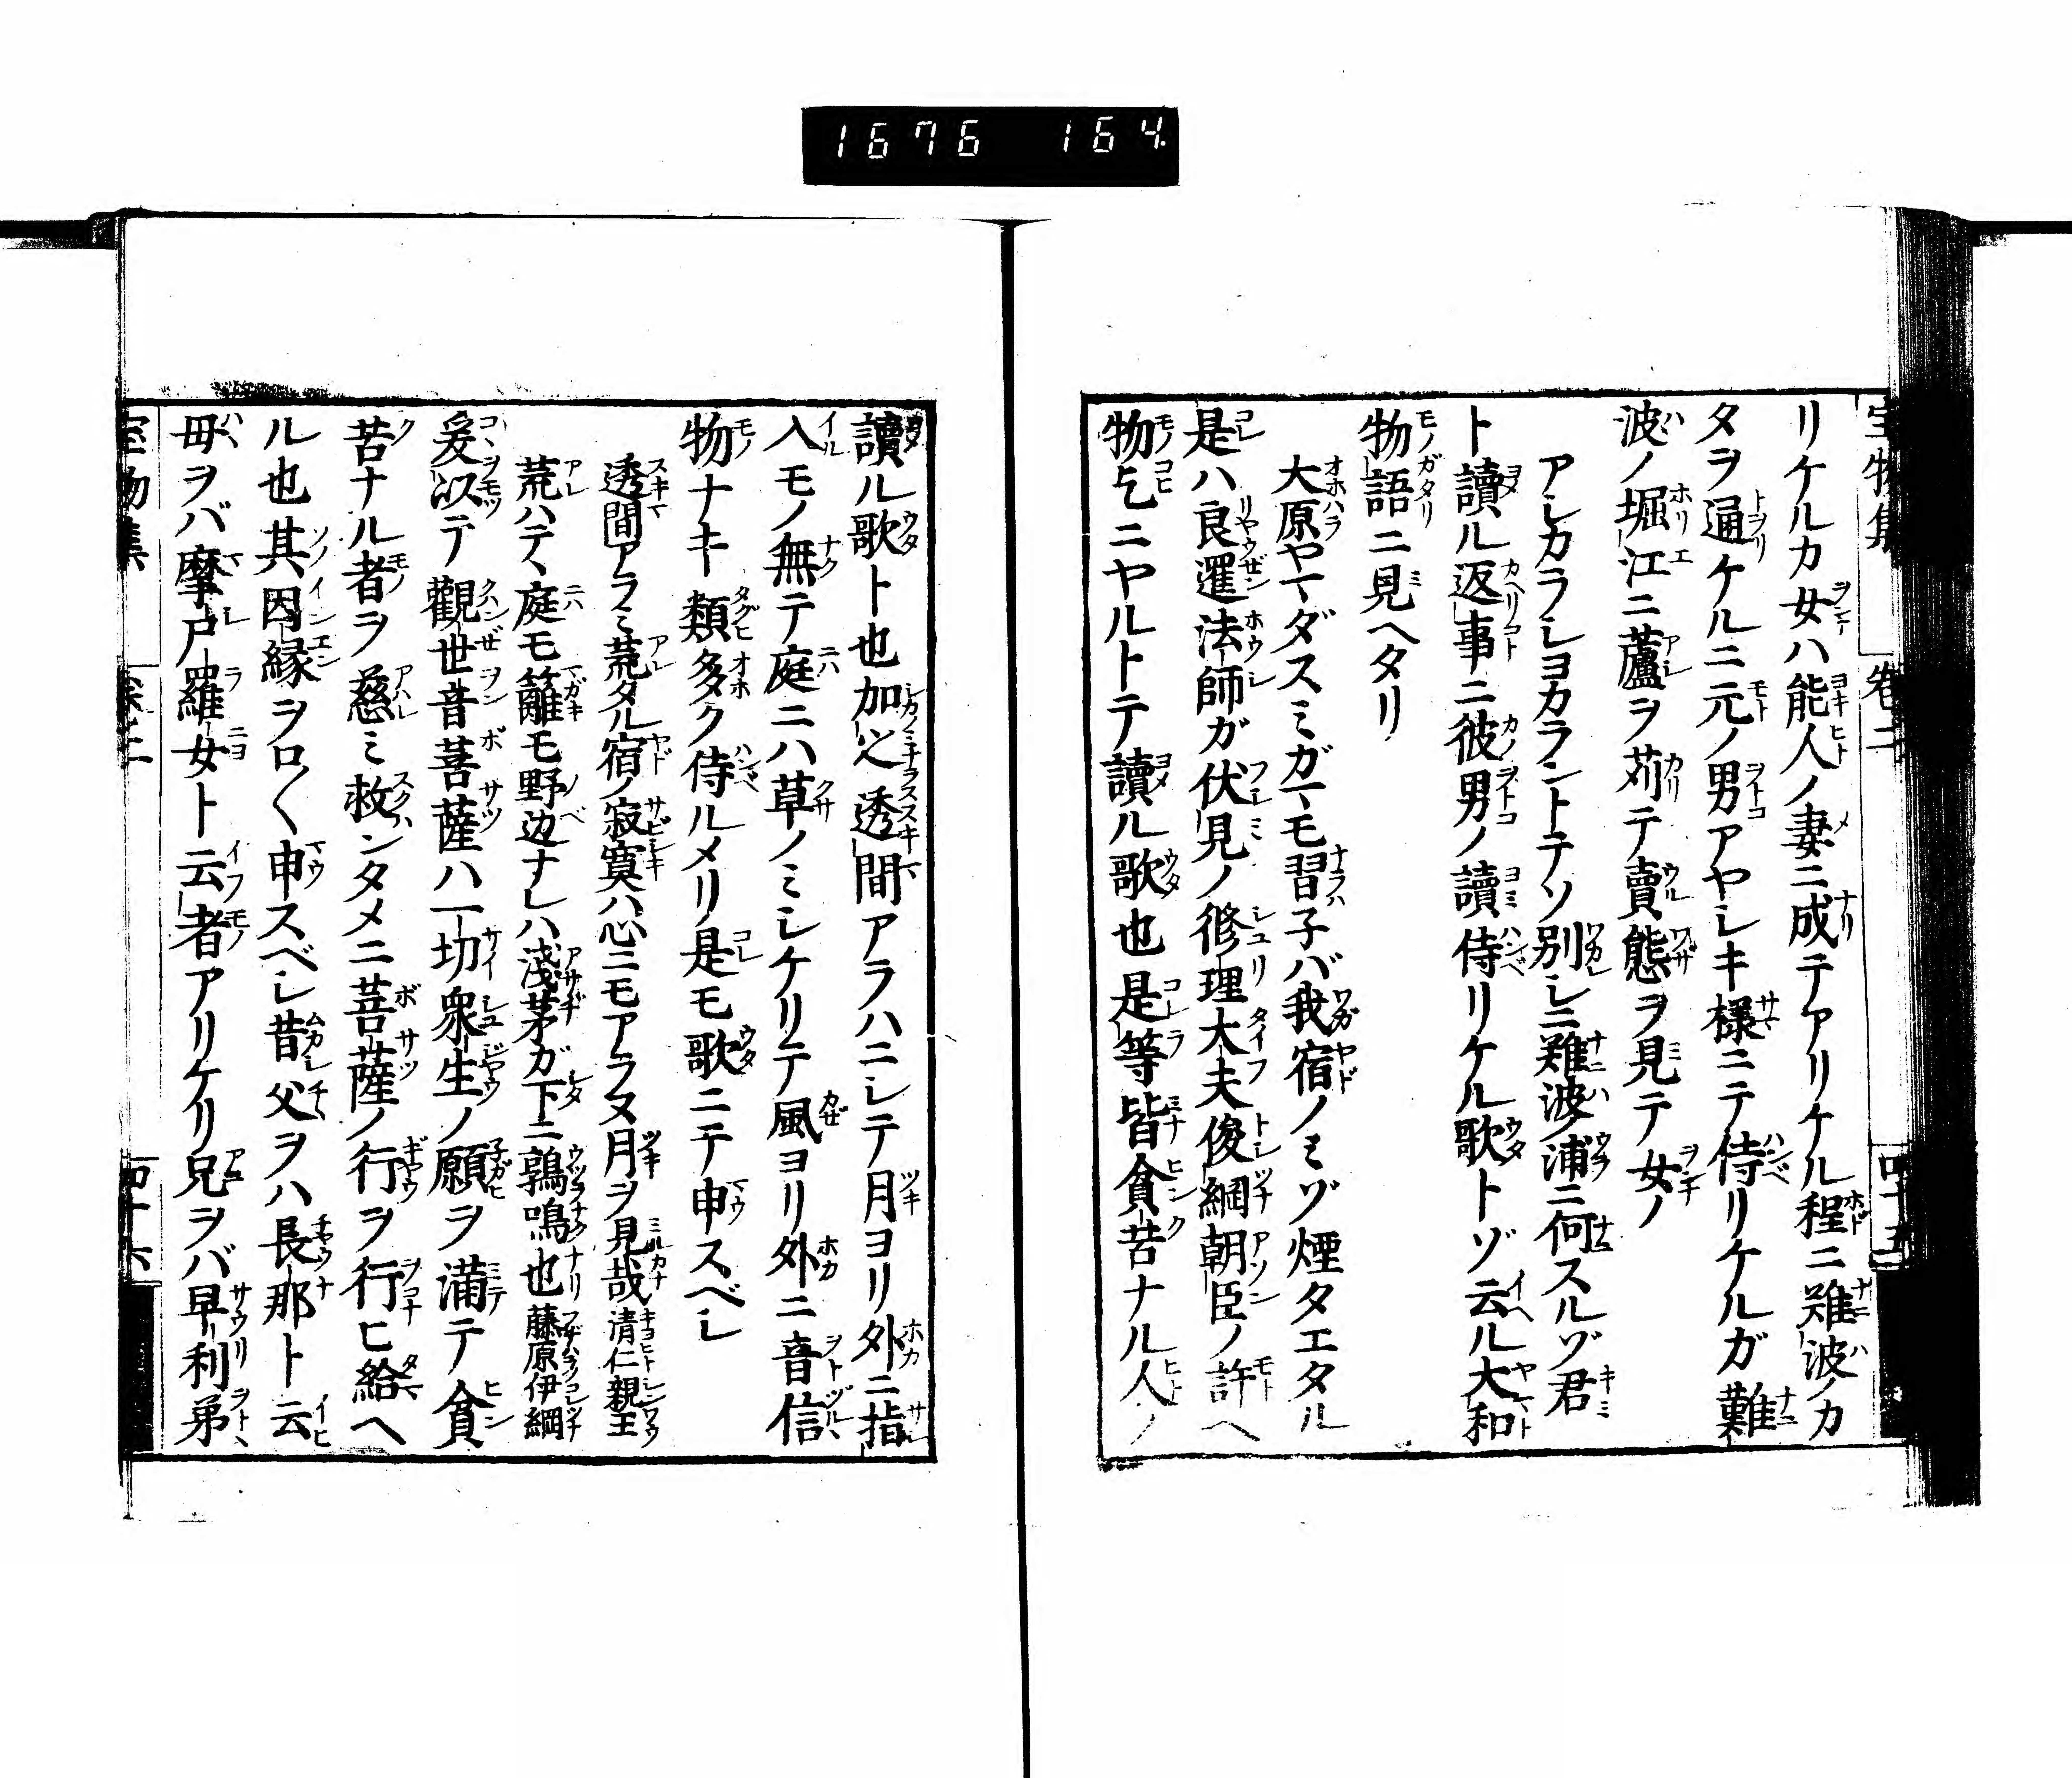 1676 164.
宝物集 巻二 四十五
リケルカ女ハ能人ノ妻ニ成テアリケル程ニ難波ノカ
タヲ通ケルニ元ノ男アヤシキ様ニテ侍リケルガ難
波ノ堀江ニ蘆ヲ苅テ賣態ヲ見テ女ノ
アシカラシヨカラントテソ別レニ難波ノ浦ニ何スルゾ君
ト讀ル返事ニ彼男ノ讀侍リケル歌トゾ云ル大和
物語ニ見ヘタリ
大原ヤマダスミガマモ習子バ我宿ノミゾ煙タエタル
是ハ良暹法師ガ伏見ノ修理大夫俊綱朝臣ノ許ヘ
物乞ニヤルトテ讀ル歌也是等皆貧苦ナル人ノ
讀ル歌ト也加之透間アラハニシテ月ヨリ外ニ指
入モノ無テ庭ニハ草ノミシケリテ風ヨリ外ニ音信
物ナキ類多ク侍ルメリ是モ歌ニテ申スベシ
透間アラミ荒タル宿ノ寂寞ハ心ニモアラヌ月ヲ見哉 清仁親王
荒ハテヽ庭モ籬モ野辺ナレハ淺茅ガ下ニ鶉鳴也 藤原伊綱
爰以テ觀世音菩薩ハ一切衆生ノ願ヲ滿テ貧
苦ナル者ヲ慈ミ救ンタメニ菩薩ノ行ヲ行ヒ給ヘ
ル也其因縁ヲロ〱申スベシ昔父ヲハ長那ト云
母ヲバ摩尸羅女ト云者アリケリ兄ヲバ早利弟
宝物集 巻二 四十六